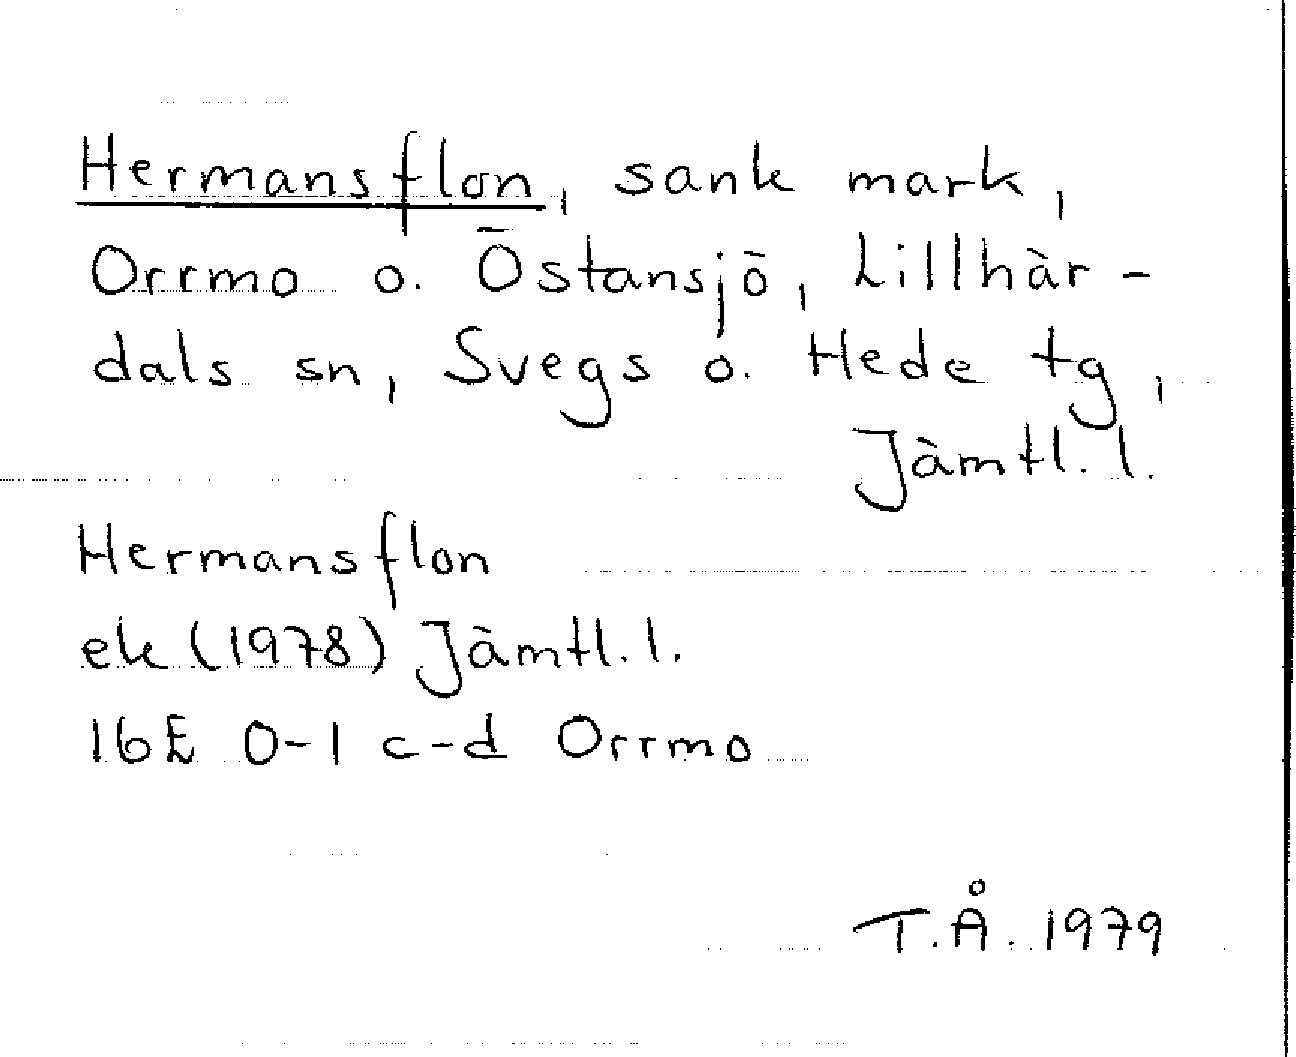 Hermansflon, sank mark,
Orrmo o. Östansjö, Lillhär-
dals sn, Svegs o. Hede tg,
Jämtl. l.
Hermansflon
ek (1978) Jämtl. l.
16E 0-1 c-d Orrmo
T.Å. 1979